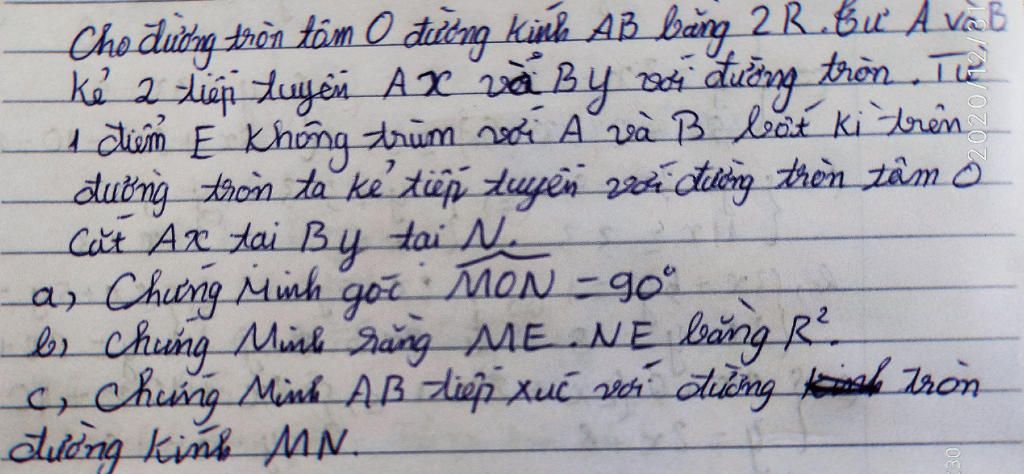 Cho đường tròn tâm O đường kính AB bằng 2R. Từ A và B
kẻ 2 tiếp tuyến Ax và By với đường tròn. Từ
1 điểm E không trùm với A và B bất kì trên
đường tròn ta kẻ tiếp tuyến với đường tròn tâm O
Cắt Ax tai By tại N.
a, Chứng Minh góc MON = 90°
b) Chứng Minh rằng ME . NE bằng R².
c, Chứng Minh AB tiếp xúc với đường tròn
đường kính MN.
2020/12/31
30